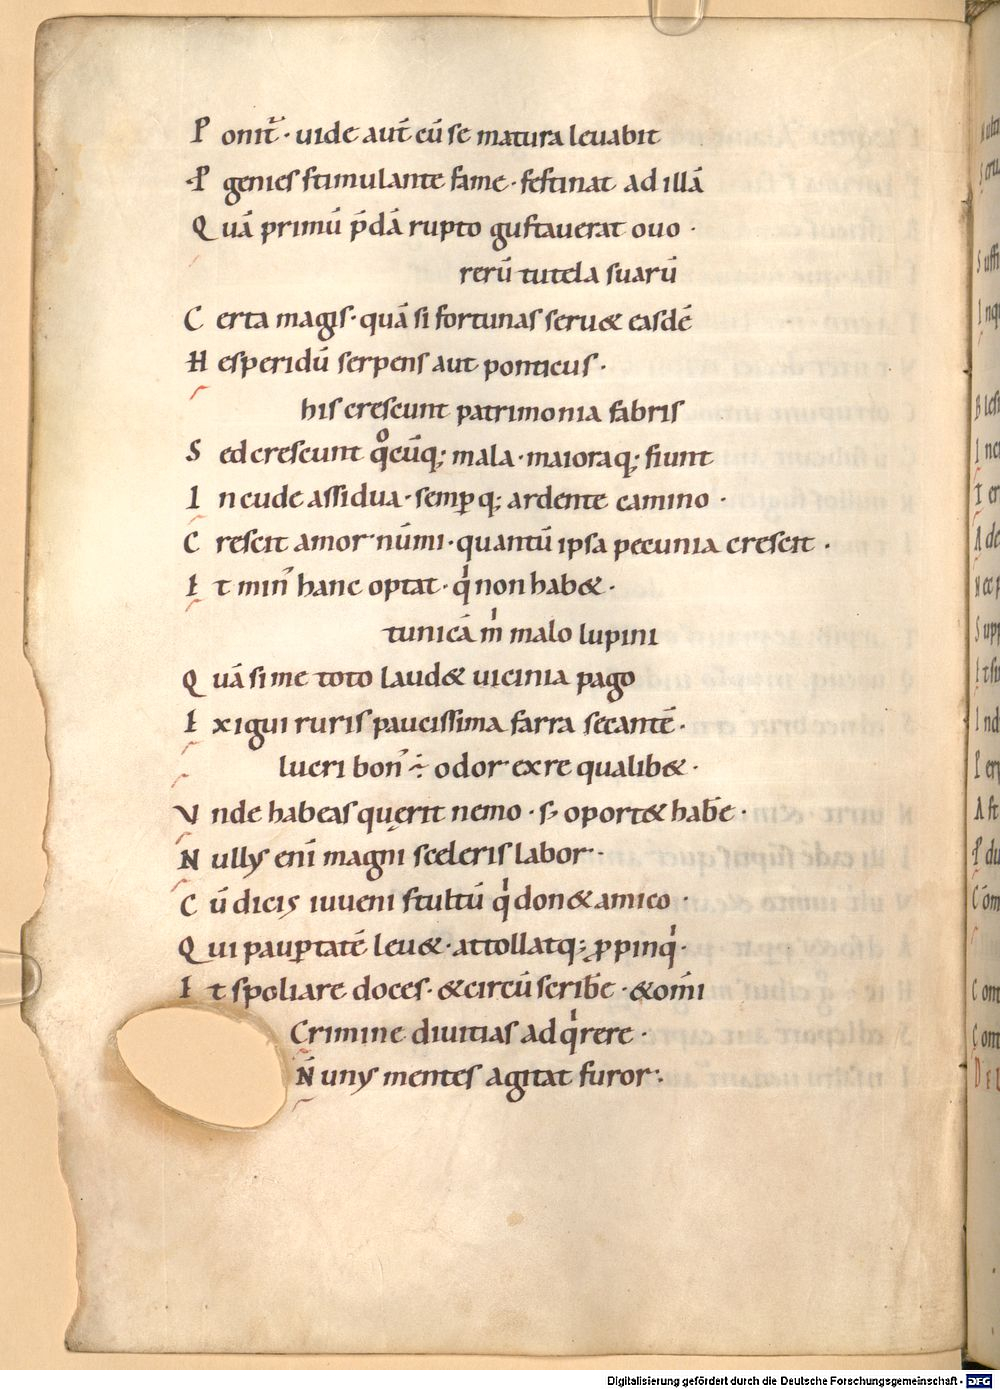 P onit᷑ · uide aut̄ cū se matura leuabit
·P genies stimulante fame · festinat ad illā
Q uā primū p̄dā rupto gustauerat ouo ·
rerū tutela suarū
C erta magis · quā si fortunas seru& easdē
H esperidū serpens aut ponticus ·
his crescunt patrimonia fabris
S ed crescunt qͦcūq; mala · maioraq; fiunt
I ncude assidua · semꝑ q; ardente camino ·
C rescit amor nūmi · quantū ipsa pecunia crescit ·
E t min᾽ hanc optat · qͥ non hab& ·
tunicā mͥ malo lupini
Q uā si me toto laud& uicinia pago
E xigui ruris paucissima farra secantē ·
lucri bon᾽ ÷ odor ex re qualib& ·
V nde habeas quęrit nemo · s; oport& hab̄e ·
N ullꝰ eni̅ magni sceleris labor ·
C ū dicis iuueni stultū qͥ don& amico ·
Q ui pauꝑtatē leu& · attollatq; ꝓpinqͥ ·
E t spoliare doces · & circū scrib̄e · & om̄i
Crimine diuitias adqͥrere ·
N̄ unꝰ mentes agitat furor ⁏
Digitalisierung gefördert durch die Deutsche Forschungsgemeinschaft - DFG